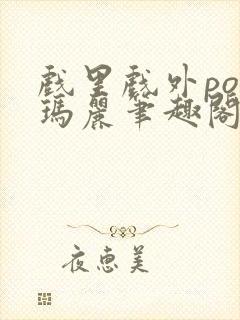 戲里戲外po
瑪麗筆趣閣
夜惠美